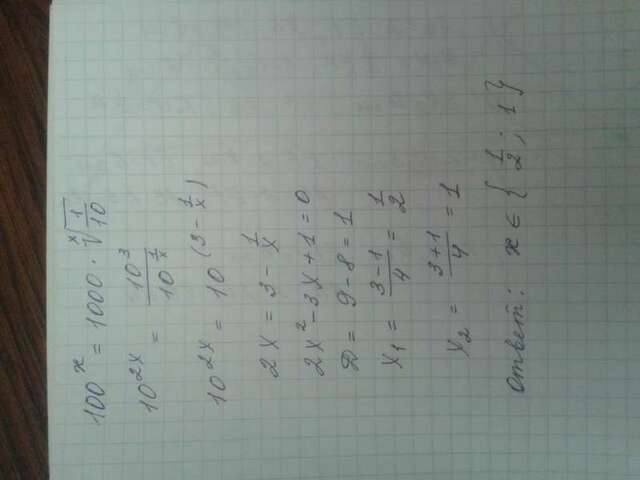 100^x = 1000 · ˣ√(1/10)
10^(2x) = 10^3 / 10^(1/x)
10^(2x) = 10^(3 - 1/x)
2x = 3 - 1/x
2x² - 3x + 1 = 0
D = 9 - 8 = 1
x₁ = (3-1)/4 = 1/2
x₂ = (3+1)/4 = 1
Ответ: x ∈ {1/2; 1}